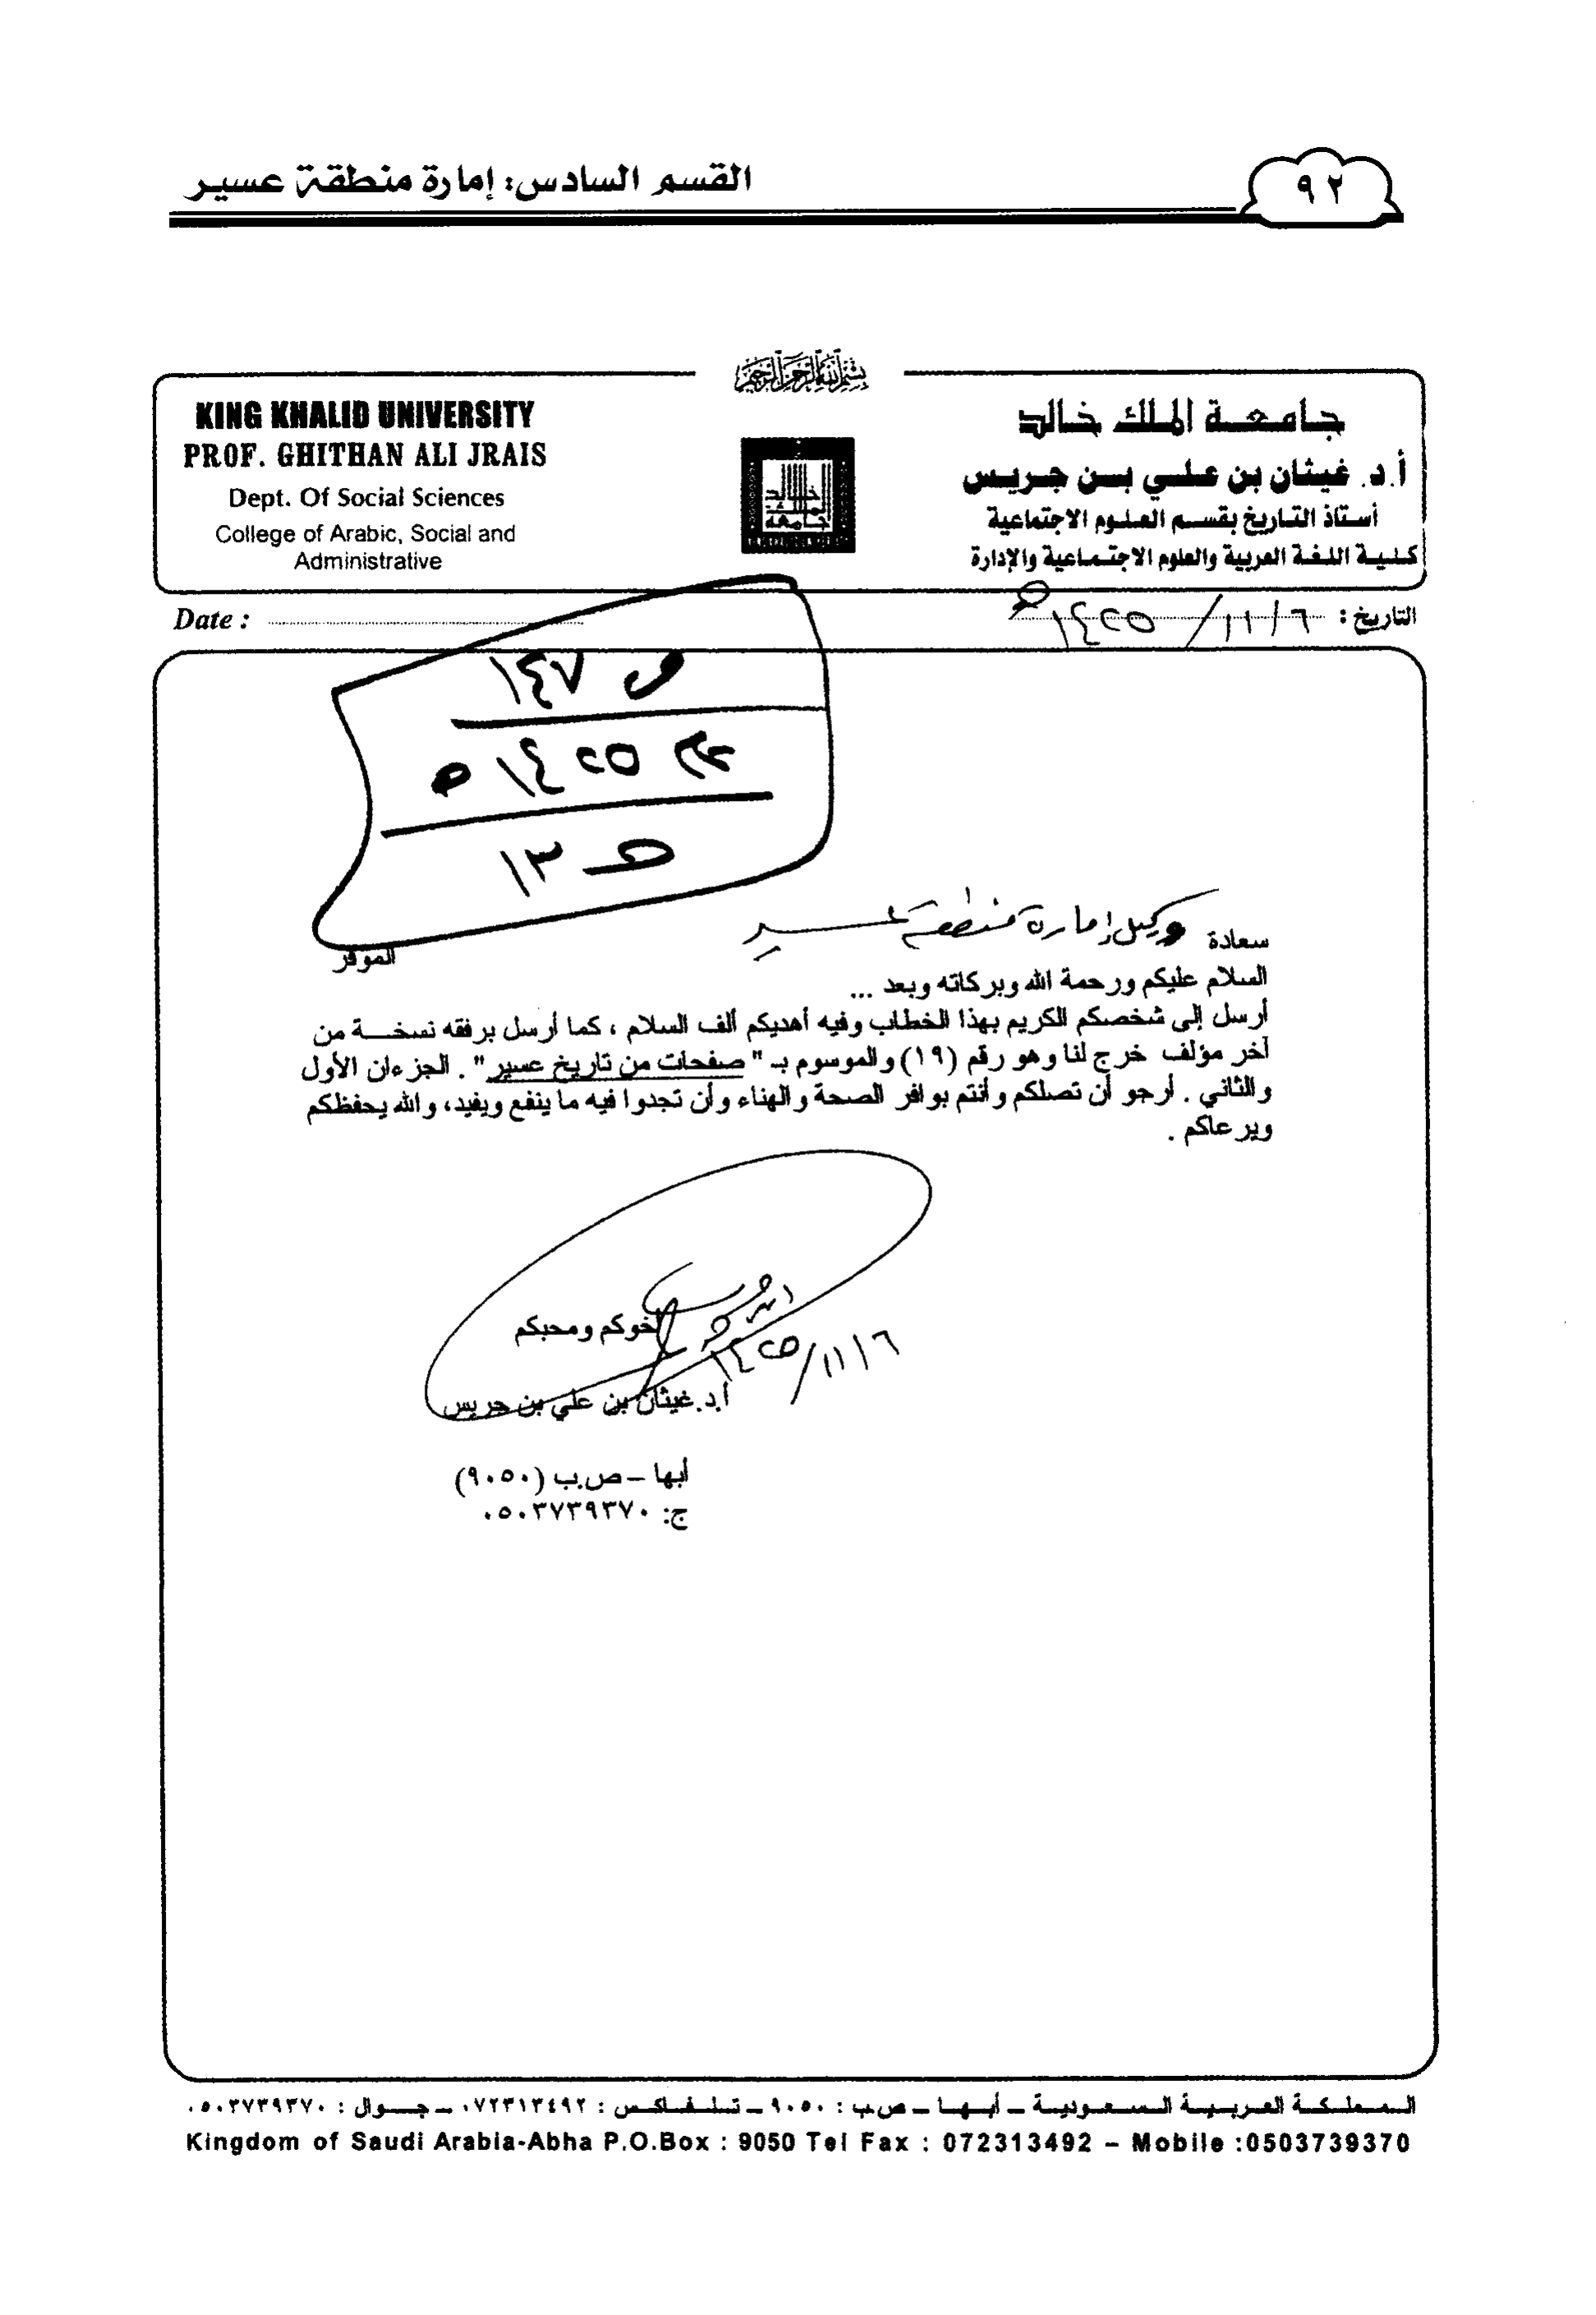 القسم السادس: إمارة منطقة عسير
٩٢
بسم الله الرحمن الرحيم
KING KHALID UNIVERSITY
PROF. GHITHAN ALI JRAIS
Dept. Of Social Sciences
College of Arabic, Social and
Administrative
جامعة الملك خالد
أ.د. غيثان بن علي بن جريس
أستاذ التاريخ بقسم العلوم الاجتماعية
كلية اللغة العربية والعلوم الاجتماعية والإدارة
Date :
التاريخ : ١٤٢٥/١١/٦هـ
ص ١٤٧
١٤٢٥ هـ
١٣
سعادة وكيل إمارة منطقة عسير الموقر
السلام عليكم ورحمة الله وبركاته وبعد ...
أرسل إلى شخصكم الكريم بهذا الخطاب وفيه أهديكم ألف السلام ، كما أرسل برفقه نسخة من
آخر مؤلف خرج لنا وهو رقم (١٩) والموسوم بـ " صفحات من تاريخ عسير" . الجزءان الأول
والثاني . أرجو أن تصلكم وأنتم بوافر الصحة والهناء وأن تجدوا فيه ما ينفع ويفيد، والله يحفظكم
ويرعاكم .
أخوكم ومحبكم
١٤٢٥/١١/٦
أ.د. غيثان بن علي بن جريس
أبها – ص.ب (٩٠٥٠)
ج: ٠٥٠٣٧٣٩٣٧٠
المملكة العربية السعودية – أبها – ص.ب : ٩٠٥٠ – تلفاكس : ٠٧٢٣١٣٤٩٢ – جوال : ٠٥٠٣٧٣٩٣٧٠
Kingdom of Saudi Arabia-Abha P.O.Box : 9050 Tel Fax : 072313492 – Mobile :0503739370